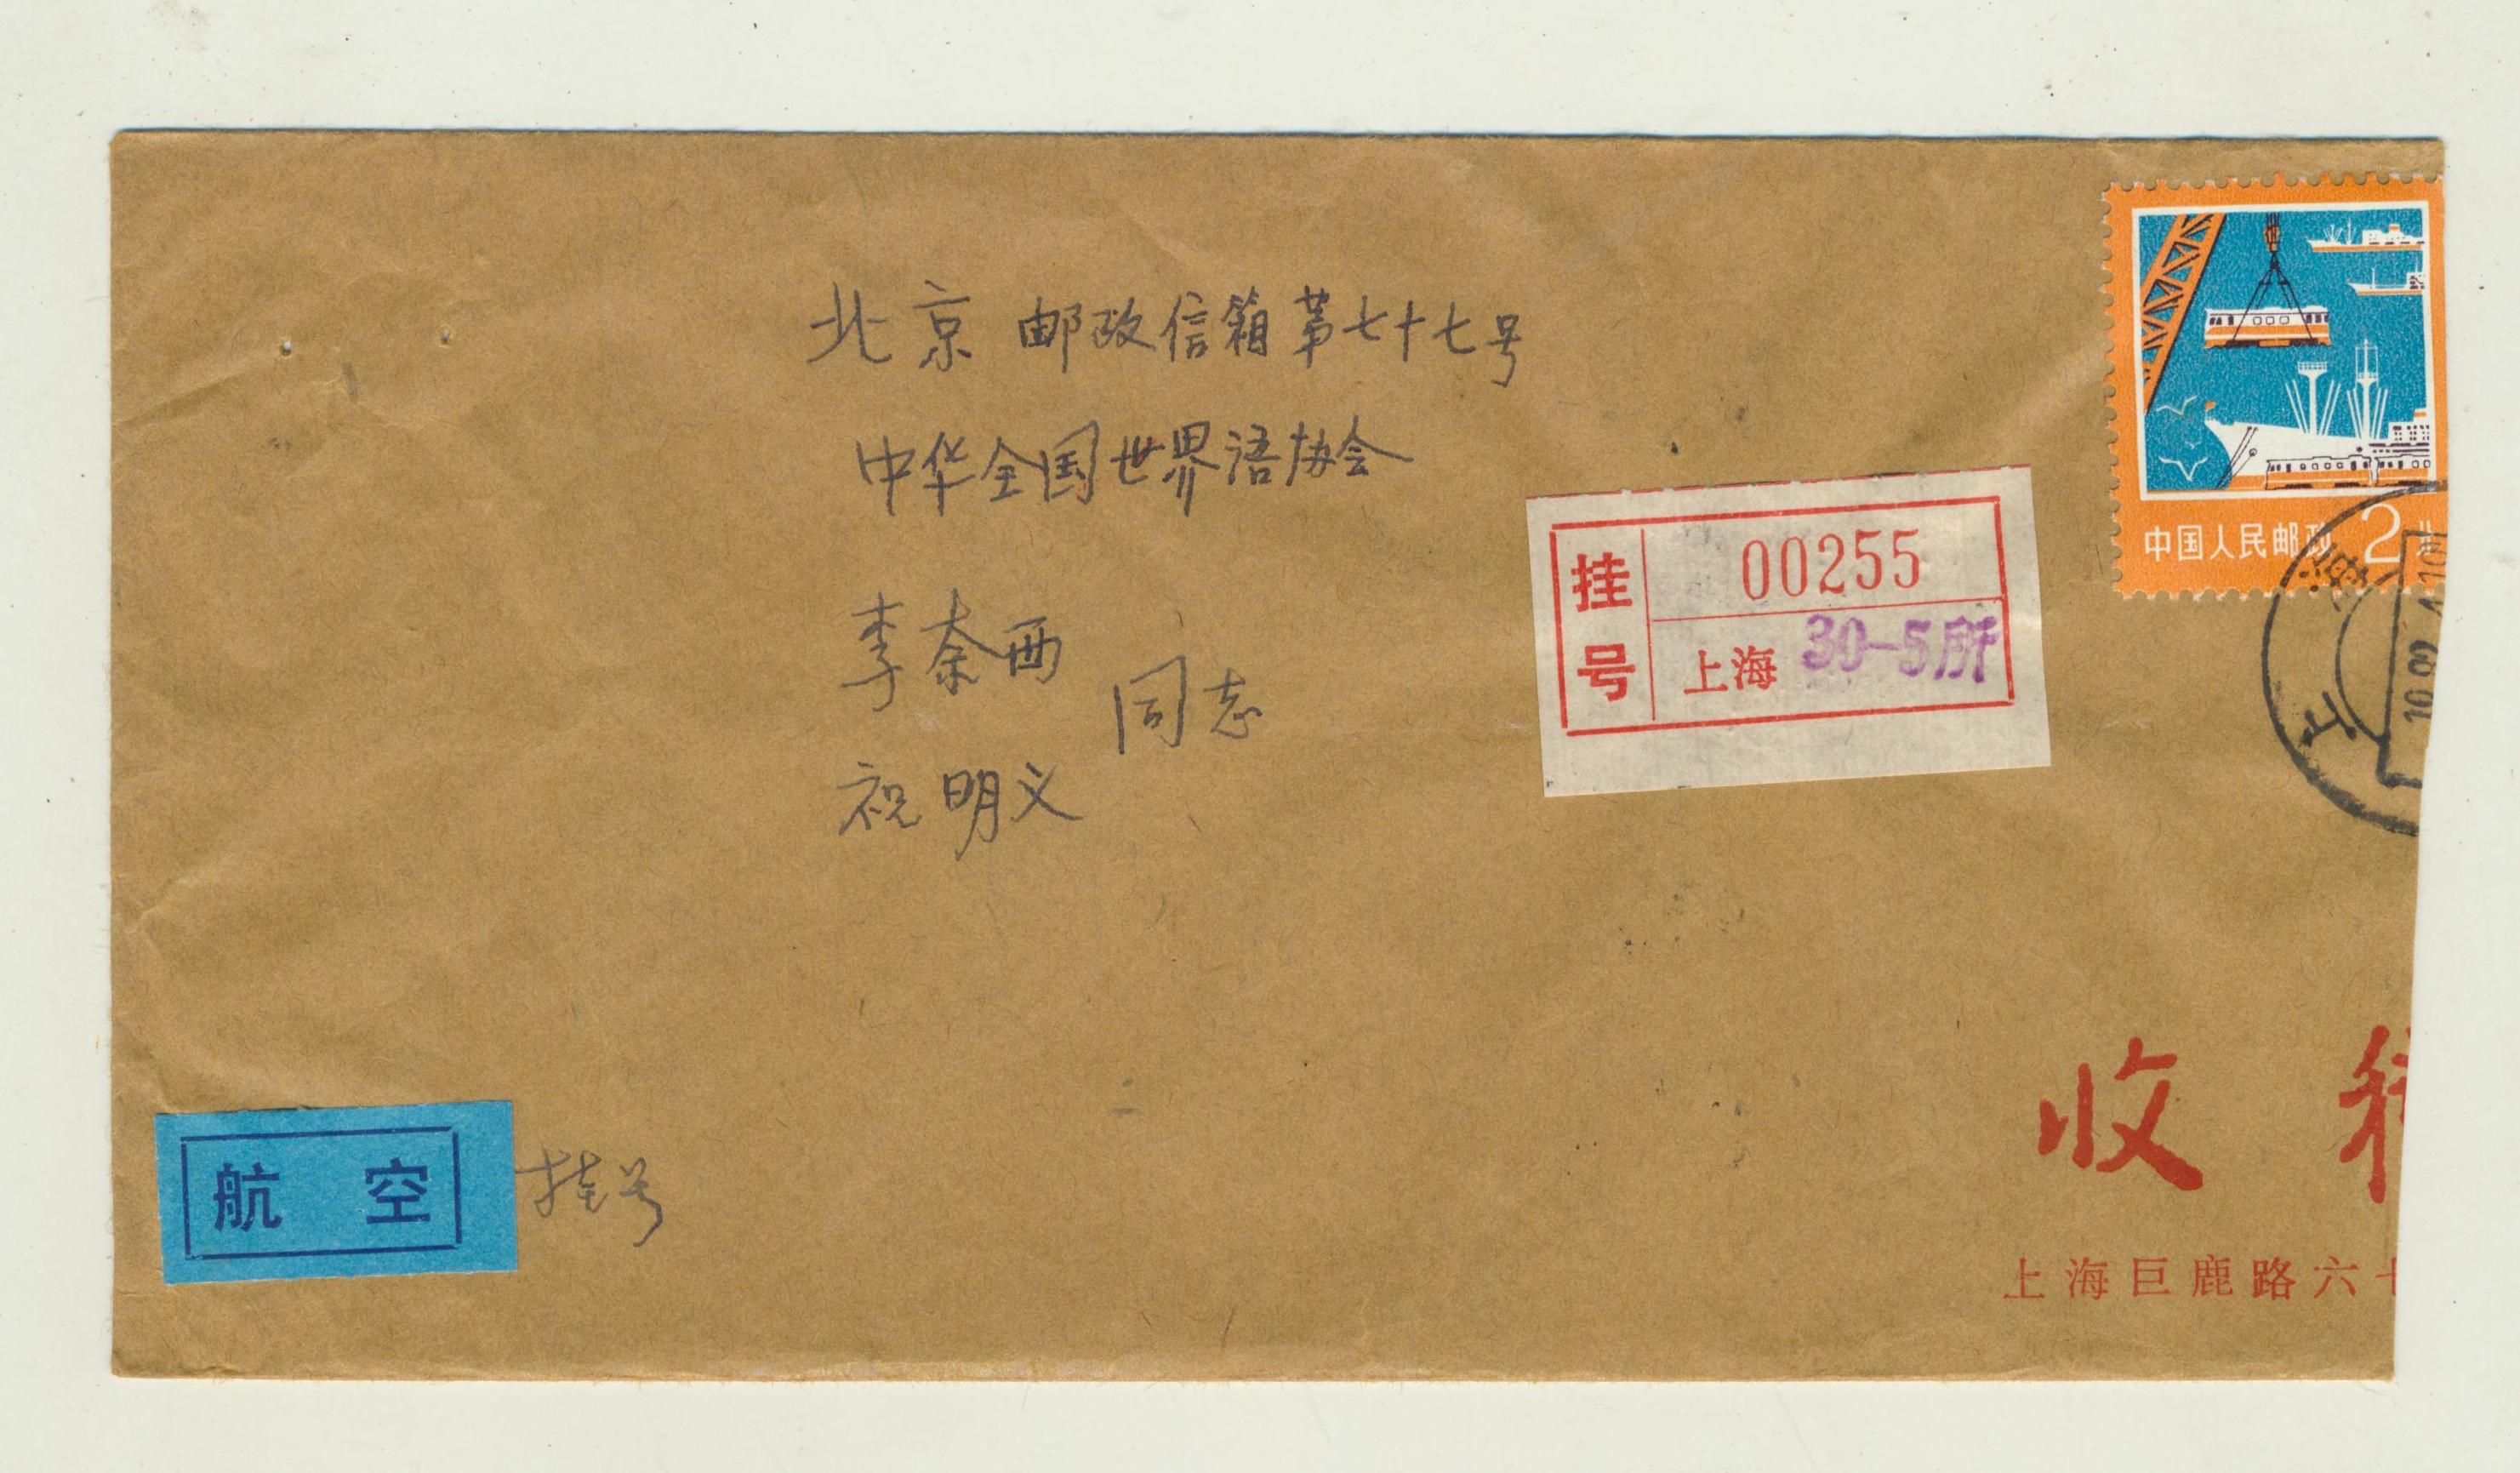 北京 邮政信箱第七十七号
中华全国世界语协会
李奈西
同志
祝明义
挂号
00255
上海 30-5所
中国人民邮政 2
上海
航 空
挂号
收
上海巨鹿路六